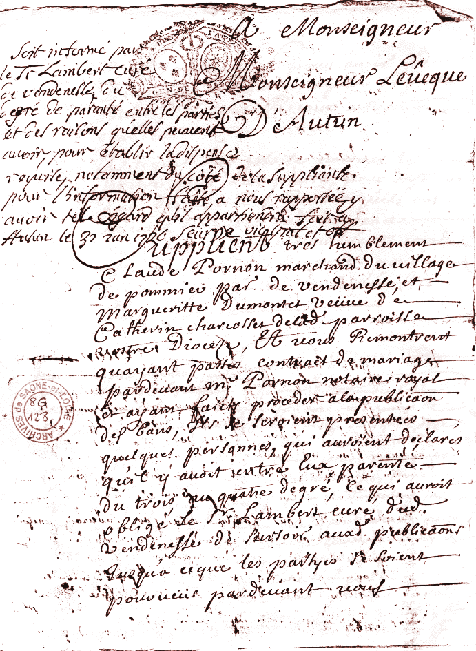 A Monseigneur
Monseigneur Leveque
D'Autun
Soit informé par
le Sr Lambert curé
de vendenesse du
degré de parenté entre les parties
et des raisons quelles peuvent
avoir pour établir la dispense
requise, notamment du côté de la suppliante
pour l'information faite a nous rapportée y
avoir tel egard qu'il appartiendra
Autun le
Supplient tres humblement
Claude Pornon marchand du village
de pommier par. de vendenesse et
Margueritte Dumont veuve de
Catherin charcosset de lad parroisse
votre Diocese, Et vous Remontrent
quayant passé contract de mariage
pardevant me Pornon notaire royal
et ayant faict proceder a la publicaon
des bans, Ils se seroient presentees
quelques personnes qui auroient declares
quil y avoit entre Eux parenté
du trois au quatre degré, ce qui auroit
obligé le Sr Lambert cure dud.
Vendenesse de surseoir auxd. publicaons
jusqua ce que les partyes se soient
pourvues pardevant vous
ARCHIVES de SAONE-ET-LOIRE